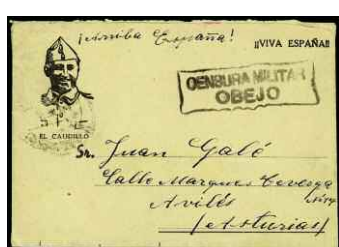 ¡Arriba España!
¡¡VIVA ESPAÑA!!
CENSURA MILITAR
OBEJO
EL CAUDILLO
Sr. Juan Galé
Calle Marques Teverga
Avilés
(Asturias)